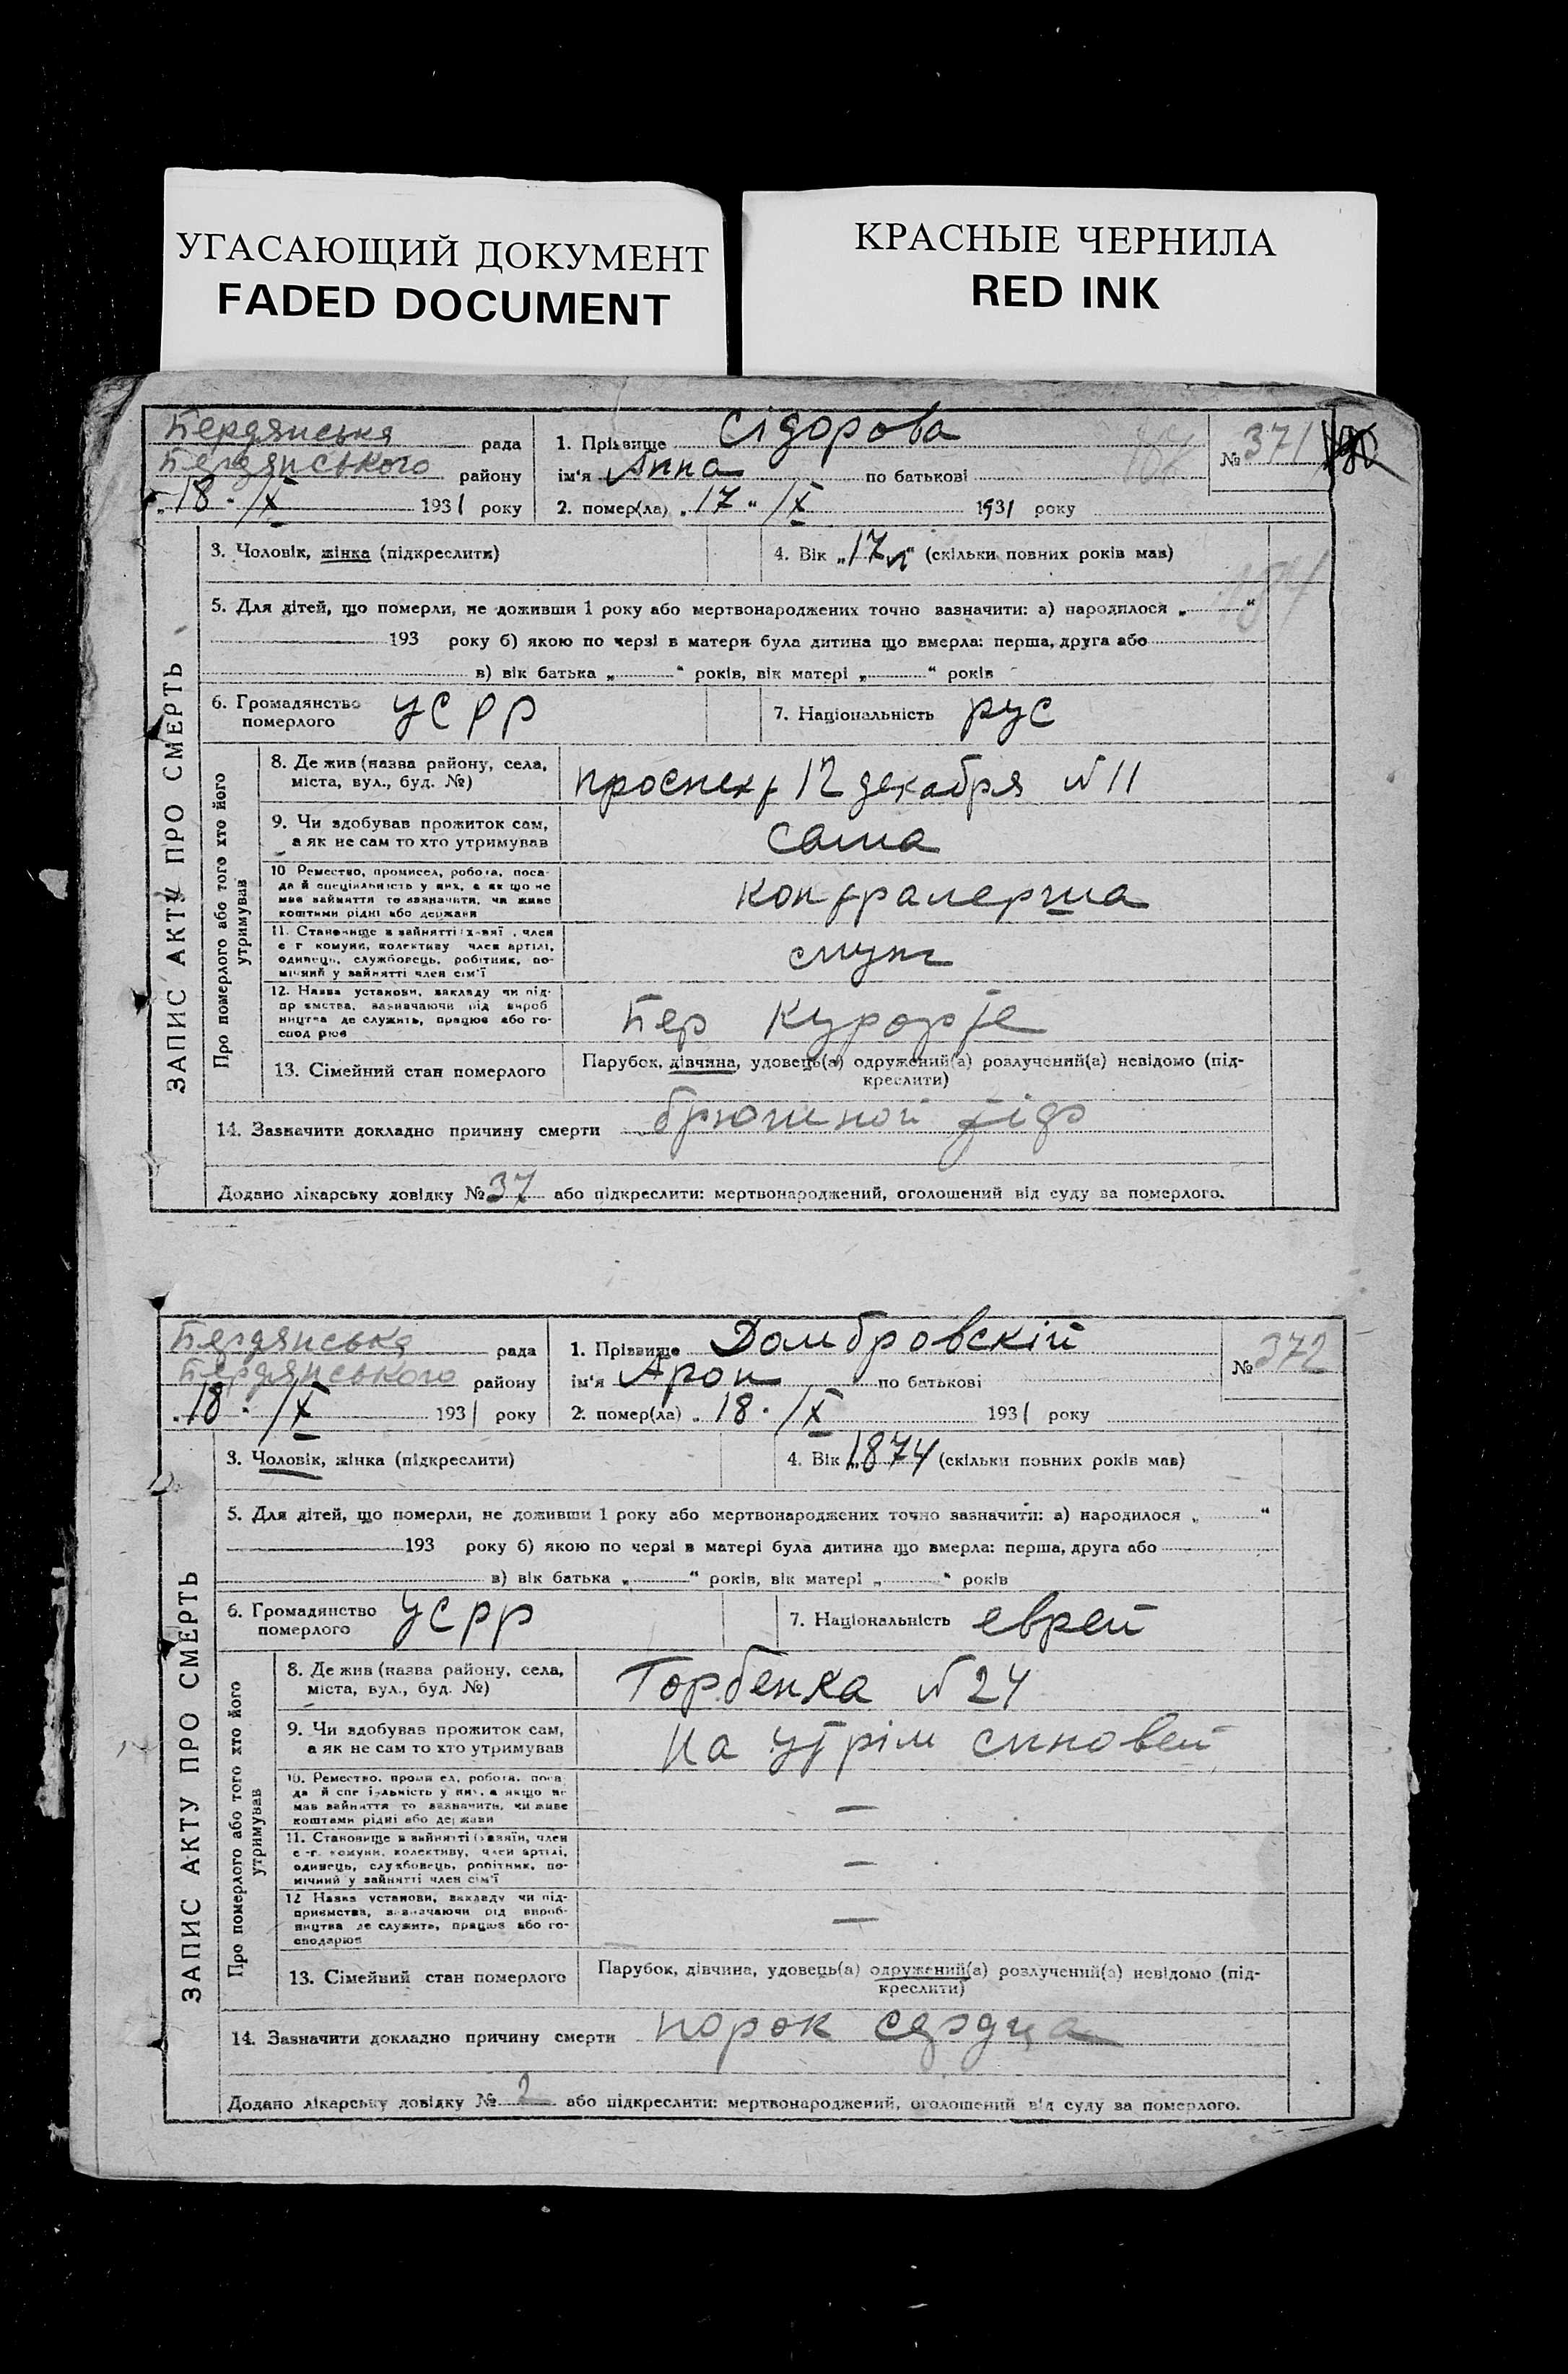 УГАСАЮЩИЙ ДОКУМЕНТ
FADED DOCUMENT
КРАСНЫЕ ЧЕРНИЛА
RED INK
Бердянська рада
Бердянського району
„18" IX 1931 року
1. Прізвище Сідорова
ім'я Анна по батькові
2. помер(ла) „17" IX 1931 року
№ 371
3. Чоловік, жінка (підкреслити)
4. Вік „17 л" (скільки повних років мав)
5. Для дітей, що померли, не доживши 1 року або мертвонароджених точно зазначити: а) народилося „ "
193 року б) якою по черзі в матери була дитина що вмерла: перша, друга або
в) вік батька „ " років, вік матері „ " років
6. Громадянство померлого УСРР
7. Національність рус
ЗАПИС АКТУ ПРО СМЕРТЬ
Про померлого або того хто його утримував
8. Де жив (назва району, села,
міста, вул., буд. №)
проспект 12 декабря № 11
9. Чи здобував прожиток сам,
а як не сам то хто утримував
сама
10 Ремество, промисел, робота, поса-
да й спеціяльність у них, а як що не
мав зайняття то зазначити, чи живе
коштами рідні або держави
контралерша
11. Становище в зайнятті
с г комуни, колективу член артілі,
одинець, службовець, робітник, по-
мічний у зайнятті член сім'ї
12. Назва установи, закладу чи під-
приємства, зазначаючи рід вироб
ництва де служить, працює або го-
Бер Курорте
13. Сімейний стан померлого
Парубок, дівчина, удовець(а) одружений(а) розлучений(а) невідомо (під-
креслити)
14. Зазначити докладно причину смерти брюшной тіф
Додано лікарську довідку № 37 або підкреслити: мертвонароджений, оголошений від суду за померлого.
Бердянська рада
Бердянського району
„18" IX 1931 року
1. Прізвище Домбровскій
ім'я Арон по батькові
2. помер(ла) „18" IX 1931 року
№ 372
3. Чоловік, жінка (підкреслити)
4. Вік „1874 (скільки повних років мав)
5. Для дітей, що померли, не доживши 1 року або мертвонароджених точно зазначити: а) народилося „ "
193 року б) якою по черзі в матері була дитина що вмерла: перша, друга або
в) вік батька „ " років, вік матері „ " років
6. Громадянство померлого УСРР
7. Національність еврей
ЗАПИС АКТУ ПРО СМЕРТЬ
Про померлого або того хто його утримував
8. Де жив (назва району, села,
міста, вул., буд. №)
Горбенка № 24
9. Чи здобував прожиток сам,
а як не сам то хто утримував
на утрім синовей
10. Ремество, промисел, робота, поса
да й спеціяльність у них, а якщо не
мав зайняття то зазначить, чи живе
коштами рідні або держави
—
11. Становище в зайнятті (хазяїн, член
с-г. комуни, колективу, член артілі,
одинець, службовець, робітник, по-
мічний у зайнятті член сім'ї
—
12 Назва установи, закладу чи під-
приємства, зазначаючи рід вироб-
ництва де служить, працює або го-
сподарює
—
13. Сімейний стан померлого
Парубок, дівчина, удовець(а) одружений(а) розлучений(а) невідомо (під-
креслити)
14. Зазначити докладно причину смерти порок сердца
Додано лікарську довідку № 2 або підкреслити: мертвонароджений, оголошений від суду за померлого.